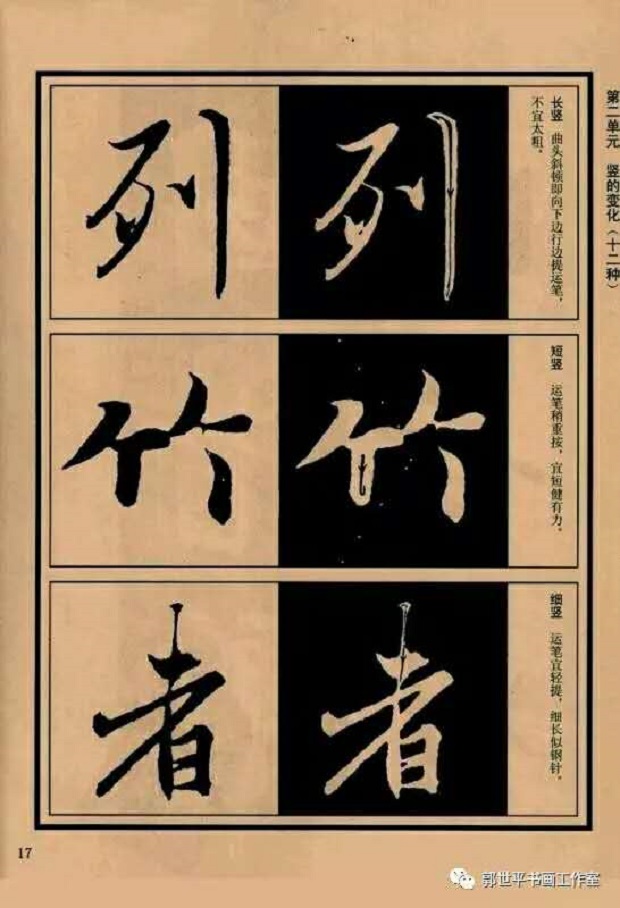 第二单元 竖的变化（十二种）
长竖 曲头斜顿即向下边行边提运笔，
不宜太粗。
列 列
短竖 运笔稍重按，宜短健有力。
竹 竹
细竖 运笔宜轻提，细长似钢针。
者 者
17
郭世平书画工作室